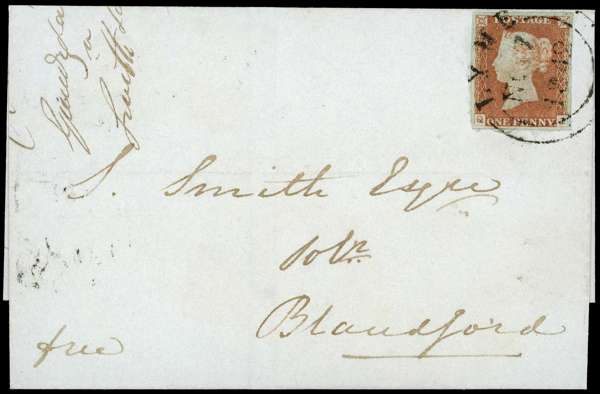 POSTAGE
ONE PENNY
LYME
1848
S. Smith Esqre
Solr
Blandford
free